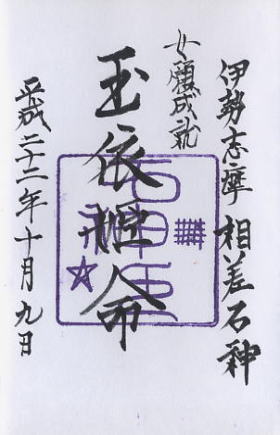 伊勢志摩 相差石神
女願成就
玉依姫命
平成二十二年十月九日
石神